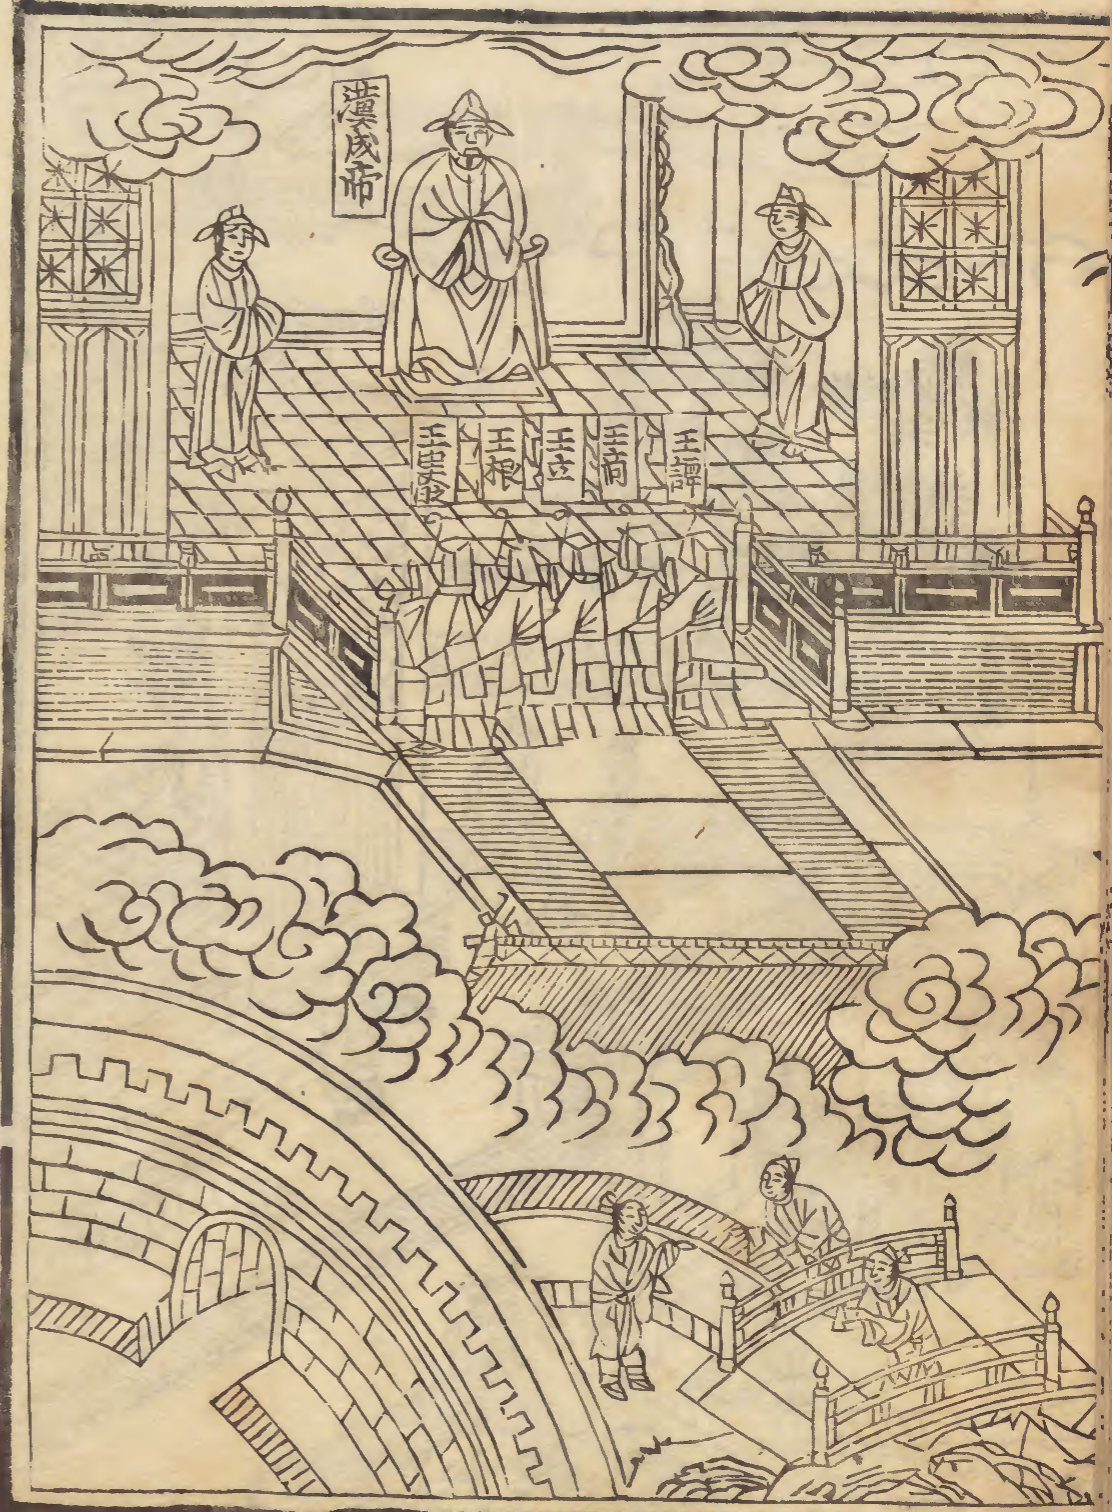 漢成帝
王譚
王商
王立
王根
王